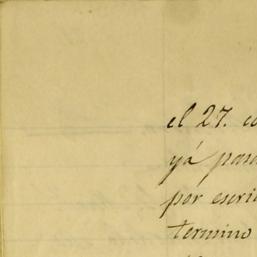 el 27. co
yá para
por escri
termino